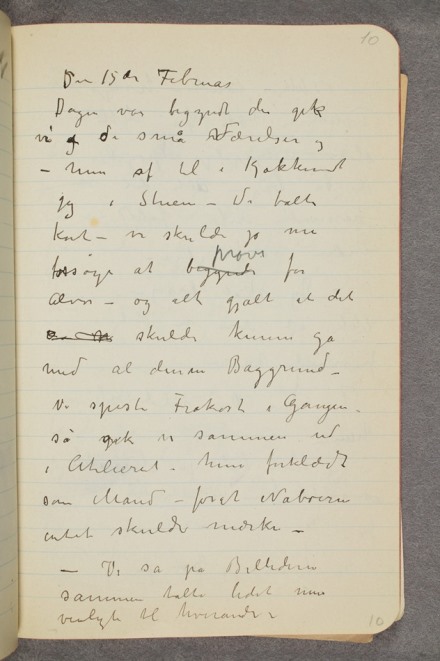 10
Den 15de Februar
Dagen var begyndt der gik
vi i de små Værelser og
– hun af til i Køkkenet
jeg i Stuen – Vi talte
kort – vi skulde jo nu
prøve
forsøge at begynde for
alvor – og alt gjalt at det
skulde kunne ga
med al denne Baggrund –
Vi spiste Frokost i Gangen –
så gik vi sammen ud
i Atelieret – hun forklædt
som Mand – forat Naboerne
intet skulde mærke –
– Vi sa på Billederne
sammen talte lidt mere
venligt til hverandre
10